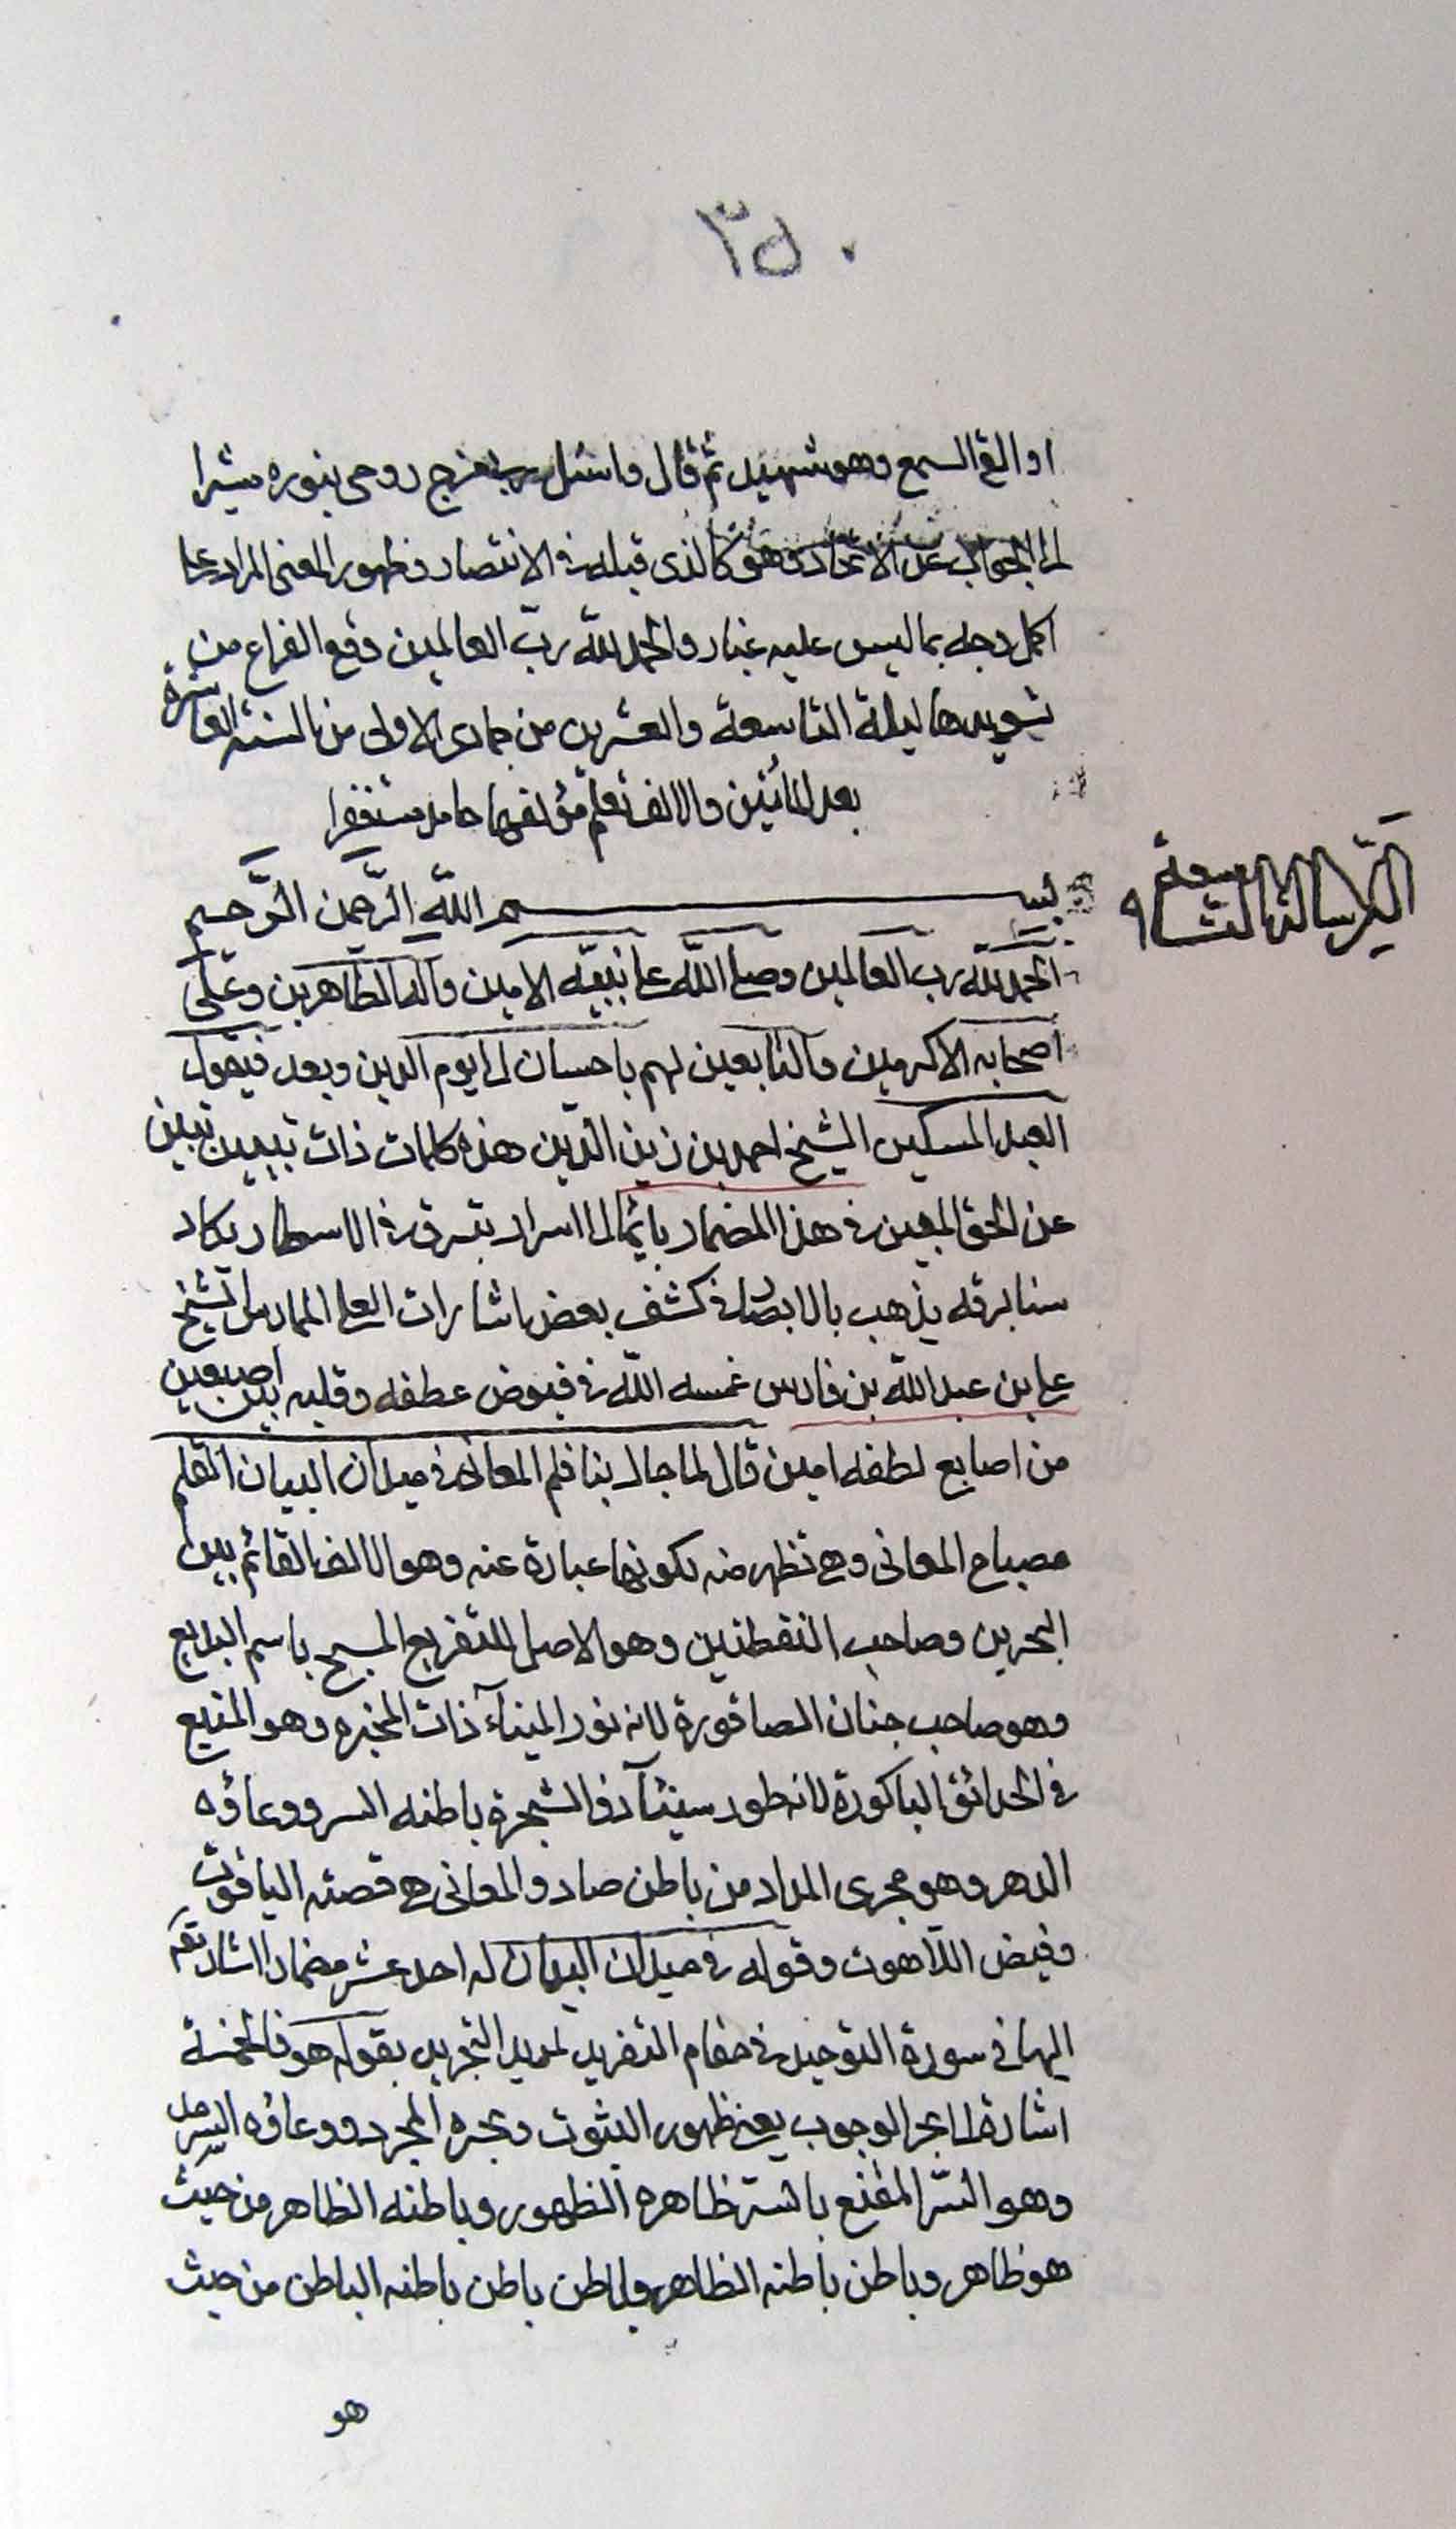 ٣٥٠
او القى السمع وهو شهيد ثم قال واسئل يعرج روحى بنوره مشيرا
الى الجواب عن الاتحاد وهو كالذى قبله فى الانتصار وظهور المعنى المراد على
اكمل وجه بما ليس عليه غبار والحمد لله ربّ العالمين وقع الفراغ من
تسويدها ليلة التاسعة والعشرين من جمادى الاولى من السنة العاشرة
بعد المائتين والالف بقلم مؤلفها حامدا مستغفرا
الرسالة التاسعة ٩
بسم اللّه الرّحمن الرّحيم
الحمد للّه رب العالمين وصلى اللّه على نبيّه الامين وآله الطاهرين وعلى
اصحابه الاكرمين والتابعين لهم باحسان الى يوم الدين وبعد فيقول
العبد المسكين الشيخ احمد بن زين الدّين هذه كلمات ذات تبيين تبين
عن الحق المعين فى هذا المضمار بايماء الى اسرار تشرق فى الاسطار يكاد
سنا برقه يذهب بالابصار فى كشف بعض اشارات العلى الممارس الشيخ
على بن عبد اللّه بن فارس غمسه اللّه فى فيوض عطفه وقلبه بين اصبعين
من اصابع لطفه امين قال لما جال بنا قلم المعانى فى ميدان البيان القلم
مصباح المعانى وهى تظهر منه لكونها عبارة عنه وهو الالف القائم بين
البحرين وصاحب النقطتين وهو الاصل للتفريع المسبح باسم البديع
وهو صاحب جنان الصاقورة لانه نور الميناء ذات المخبره وهو المنيع
فى الحدائق الباكورة لانه طور سيناء والشجرة باطنه السر ووعاؤه
الدهر وهو مجرى المداد من باطن صاد والمعانى هى قصته الياقوت
وفيض اللّاهوت وقوله فى ميدان البيان له احد عشر مضمارا اشارته
اليها فى سورة التوحيد فى مقام التفريد لمريد التجريد بقوله هو فالخمسة
اشارة الى بحر الوجوب يعنى ظهور الثبوت وبحره المجرد ووعاؤه السرمد
وهو السّر المقنع بالسّر ظاهره الظهور وباطنه الظاهر من حيث
هو ظاهر وباطن باطنه الظاهر وباطن باطن باطنه الباطن من حيث
هو